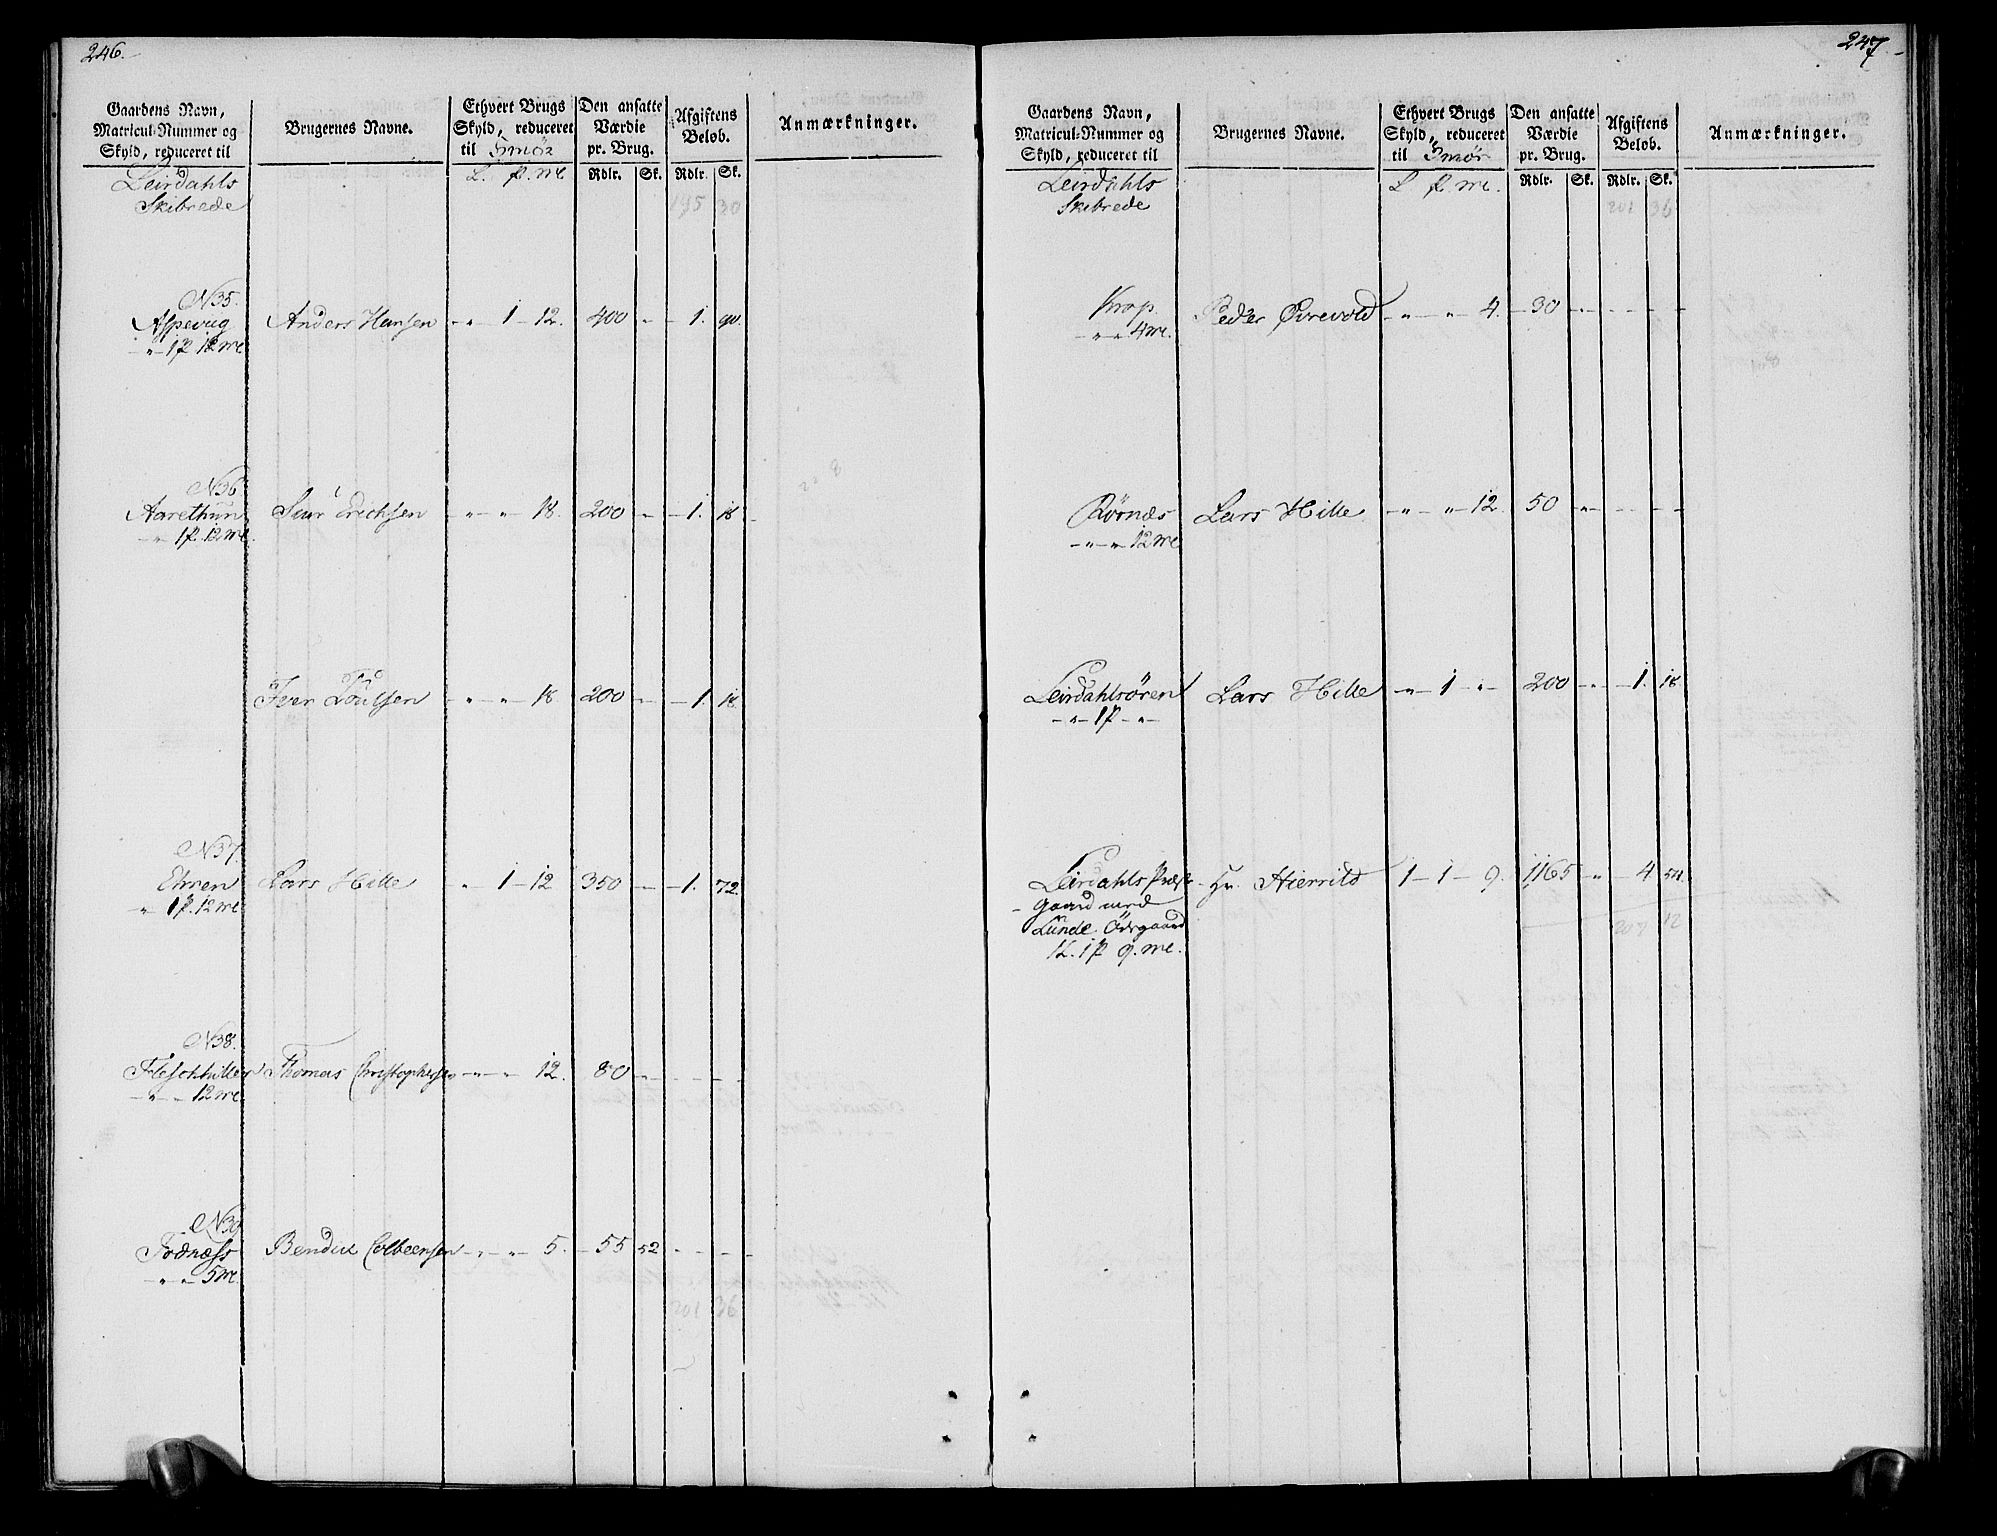 246.
Gaardens Navn, Matricul-Nummer og Skyld, reduceret til
Brugernes Navne.
Ethvert Brugs Skyld, reduceret til Smør
Den ansatte Værdie pr. Brug.
Afgiftens Beløb.
Anmærkninger.
L. p. mc
Rdlr. Sk. Rdlr. Sk.
Leirdahls
Skibrede
195 30
N 35.
Aspevug Anders Hansen - " - 1 - 12. 400 - 1. 90.
- " - 1 p 12 mc
N 36
Aarethun Siur Erichsen - " - " - 18. 200 - 1. 18
- " 1 p. 12 mc.
Iver Poulsen - " - " - 18 200 - 1. 18.
N 37.
Ehren Lars Hille " 1 - 12 350 - 1. 72.
" 1 p. 12 mc
N 38.
Thomas Christophersen - " - " 12. 80 " - - -
- " - 12 mc.
N 39
Fodnæss Bendix Colbeensen - " - " - 5. - 55 52 - - -
- " - " 5 mc.
201 36
247.
Gaardens Navn, Matricul-Nummer og Skyld, reduceret til
Brugernes Navne.
Ethvert Brugs Skyld, reduceret til Smør
Den ansatte Værdie pr. Brug.
Afgiftens Beløb.
Anmærkninger.
L p mc.
Rdlr. Sk. Rdlr. Sk.
Leirdahls
Skibrede
201 36
Krop Peder Øvrevold - " - " 4. - 30 - " - - -
- " - " 4 mc.
Rørnæs Lars Hille - " - " 12. 50 - " - - - -
- " - " 12 mc
Leirdahlsøren Lars Hille - " - 1 - " - 200 - " - 1. 18
- " - 1 p - " -
Leirdahls Præste- Hr. Hierrild 1 - 1 - 9. 1165 - " - 4 54.
gaard med
Lunde Ödegaard
1 L. 1 p 9. mc.
207 12